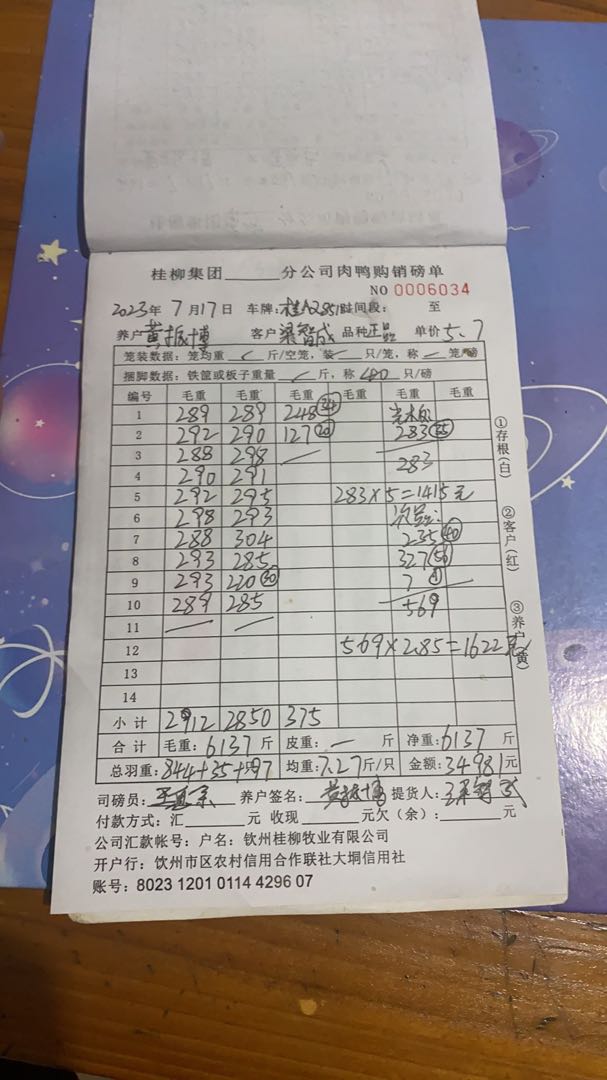 桂柳集团______分公司肉鸭购销磅单
NO 0006034
2023年 7 月17日 车牌: 桂A2851 时间段: 至
养户 黄振博 客户 梁智成 品种 正品 单价 5.7
笼装数据: 笼均重 斤/空笼, 装 只/笼, 称 笼/磅
捆脚数据: 铁筐或板子重量 斤, 称 480 只/磅
编号 毛重 毛重 毛重 毛重 毛重 毛重
1 289 289 248 24
2 292 290 127 20 283 35
3 288 298 —
4 290 291 283
5 292 295 283×5=1415元
6 298 293 次品:
7 288 304 235 40
8 293 285 327 56
9 293 220 30 7 1
10 289 285 569
11 — —
12 569×2.85=1622元
13
14
小计 2912 2850 375
合计 毛重: 6137 斤 皮重: — 斤 净重: 6137 斤
总羽重: 844+35+97 均重: 7.27 斤/只 金额: 34981 元
司磅员: 养户签名: 黄振博 提货人: 梁智成
付款方式: 汇______元 收现______元欠(余): ______元
公司汇款帐号: 户名: 钦州桂柳牧业有限公司
开户行: 钦州市区农村信用合作联社大垌信用社
账号: 8023 1201 0114 4296 07
①存根(白)
②客户(红)
③养户(黄)